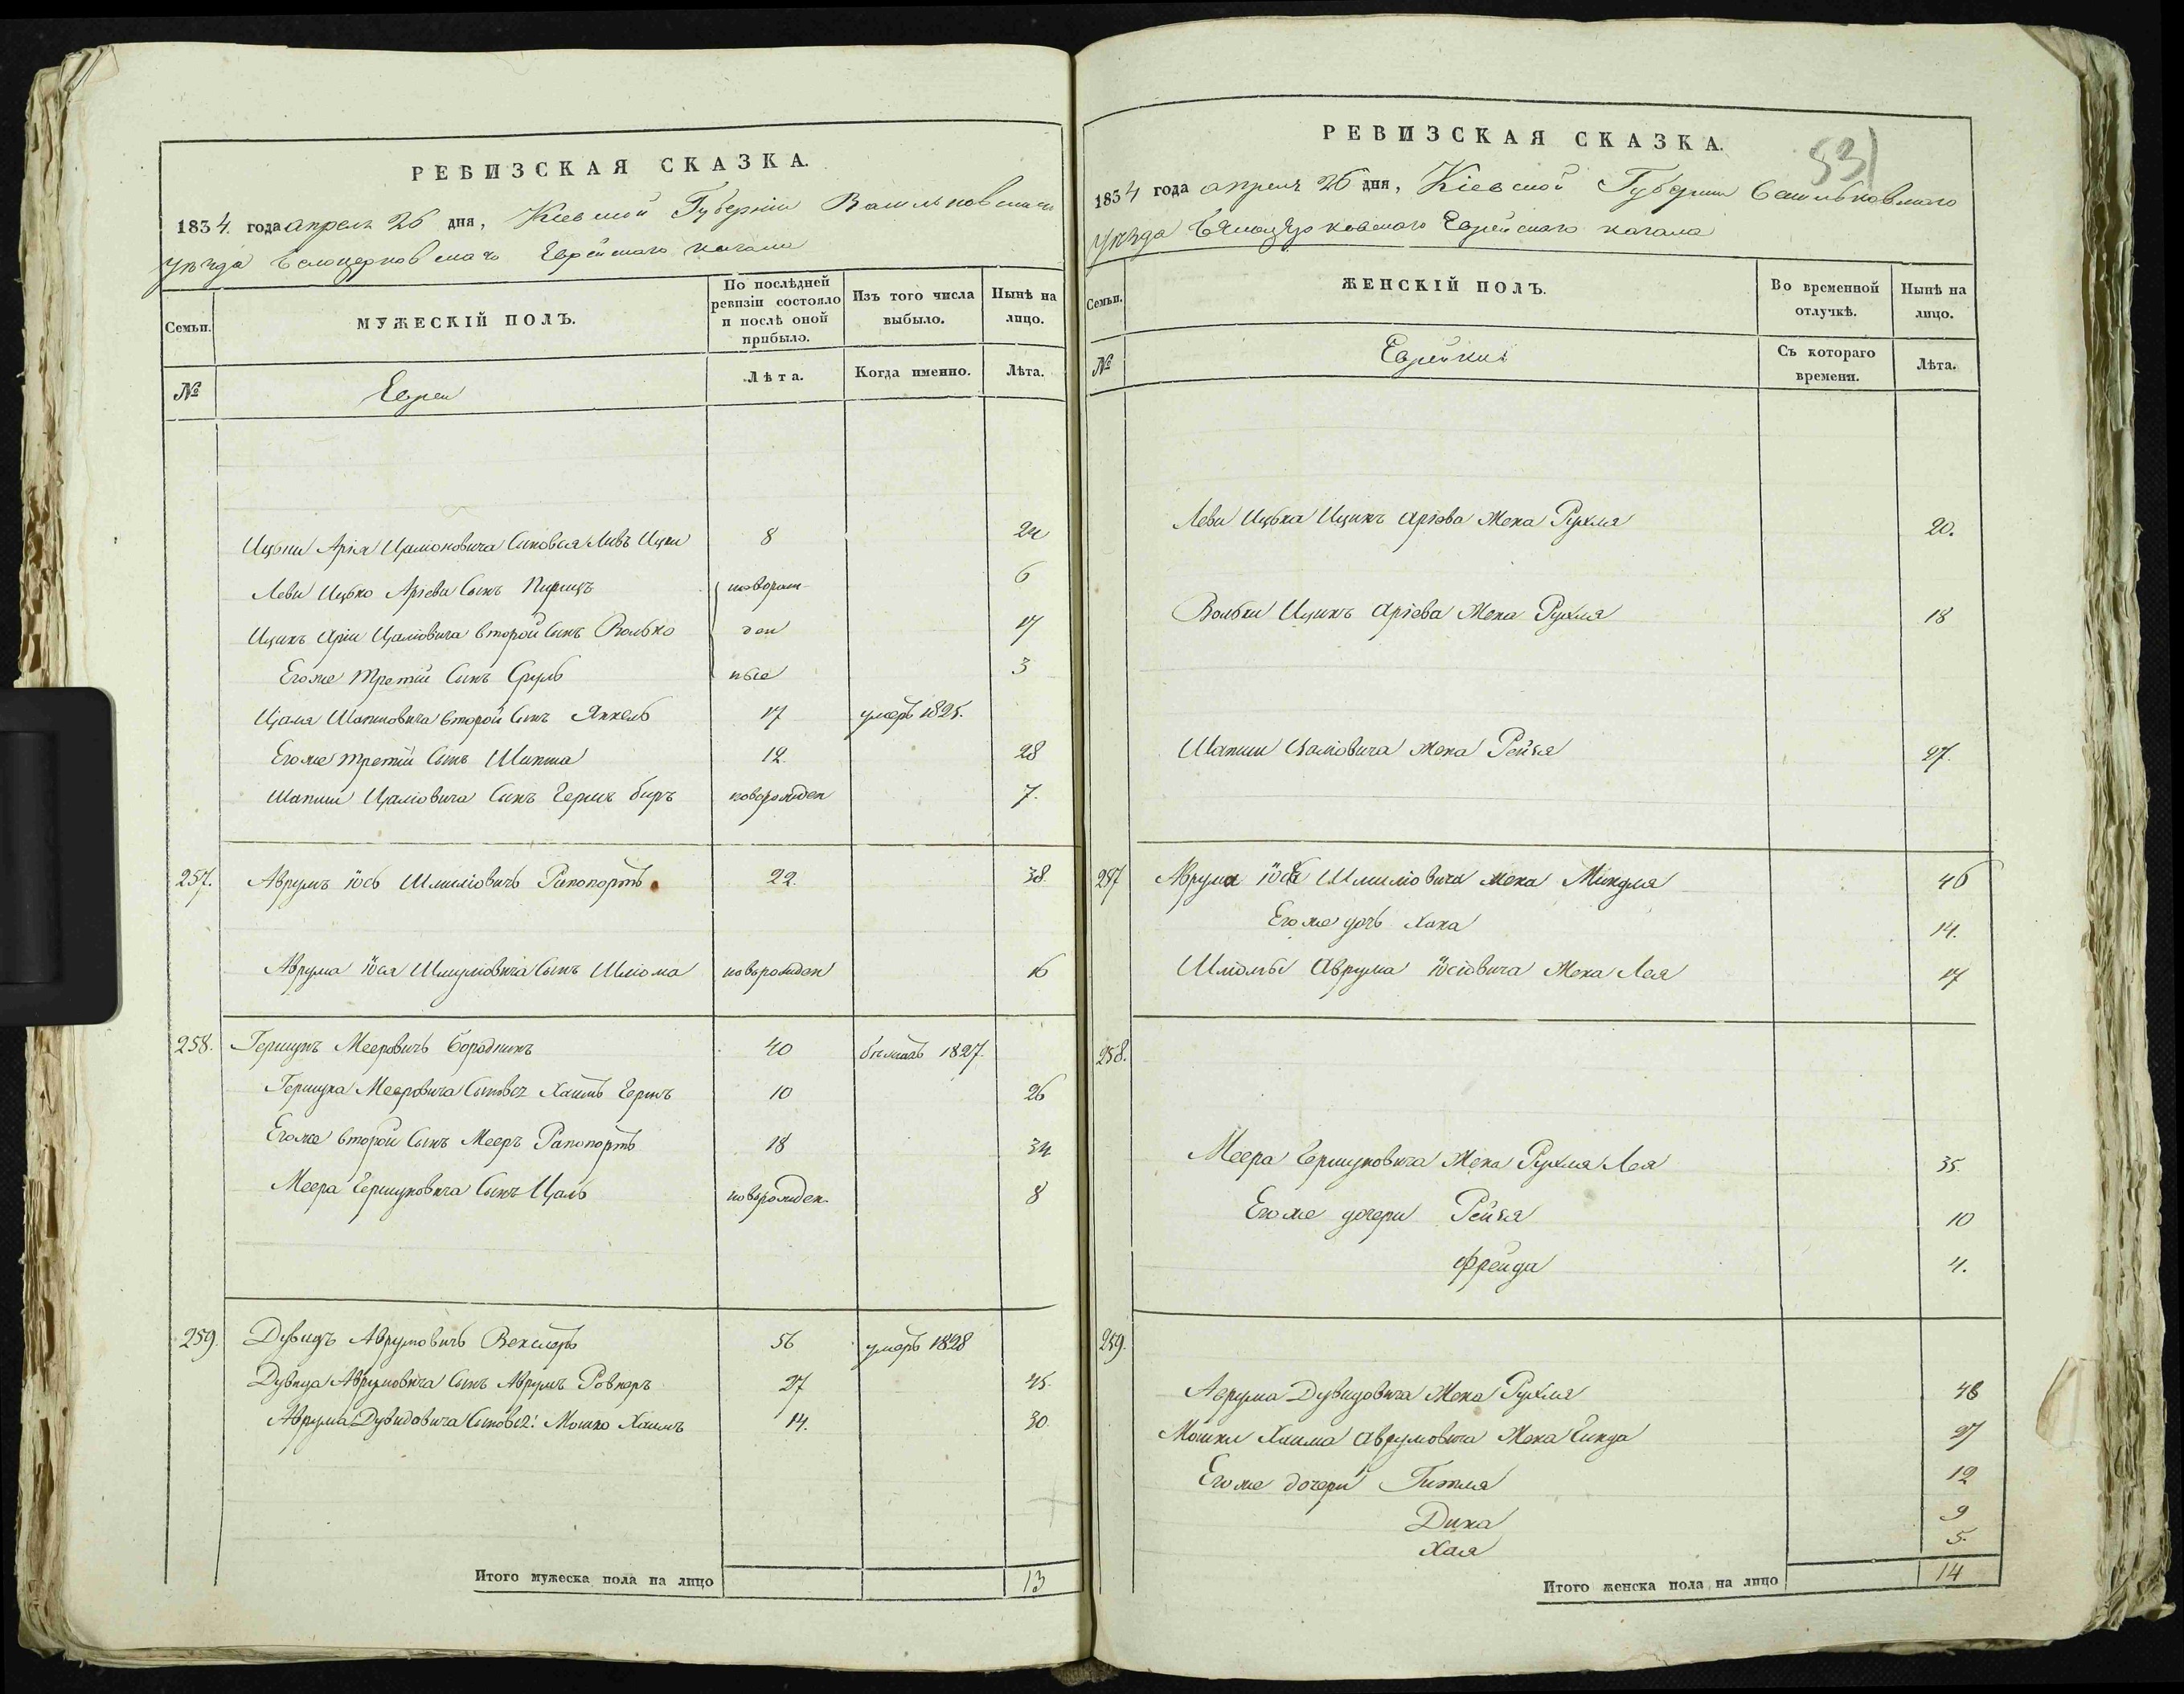 РЕВИЗСКАЯ СКАЗКА.
1834 года апреля 26 дня, Кіевской Губерніи Васильковскаго
уѣзда Белоцерковскаго Еврейскаго кагала
Семьи.
МУЖЕСКІЙ ПОЛЪ.
По послѣдней ревизіи состояло и послѣ оной прибыло.
Изъ того числа выбыло.
Нынѣ на лицо.
№
Евреи
Лѣта.
Когда именно.
Лѣта.
Ицыки Арія Цаліоновича Сыновья Ицки 8 24
Леви Ицько Аріеви Сынъ Пирицъ новорож 6
Ицикъ Аріи Цаліовича второй Сынъ Волько ден 17
Егоже третій Сынъ Сруль ные 3
Цаля Шапшовича второй Сынъ Янкель 17 умеръ 1825.
Егоже третій Сынъ Шапша 12 28
Шапши Цаліовича Сынъ Герш беръ новорожден 7.
257. Аврумъ Іось Шмиліовичъ Рапопортъ 22. 38.
Аврума Іося Шмуліовича Сынъ Шліома новорожден 16
258. Гершунъ Мееровичъ Бородникъ 40 1827.
Гершуна Мееровича Сыновья Хаимъ Герш 10 26
Егоже второй Сынъ Мееръ Рапопортъ 18 34
Меера Гершуновича Сынъ Цаль новорожден. 8
259. Дувидъ Аврумовичъ Векслеръ 56 умеръ 1828
Дувида Аврумовича Сынъ Аврумъ Ровнеръ 27 45.
Аврума Дувидовича Сыновья: Мошко Хаимъ 14. 30.
Итого мужеска пола на лицо 13
РЕВИЗСКАЯ СКАЗКА.
531
1834 года апреля 26 дня, Кіевской Губерніи Васильковскаго
уѣзда Бѣлоцерковскаго Еврейскаго кагала
Семьи.
ЖЕНСКІЙ ПОЛЪ.
Во временной отлучкѣ.
Нынѣ на лицо.
№
Еврейки
Съ котораго времени.
Лѣта.
Леви Ицька Ицикъ Аріева Жена Рухля 20.
Вольки Ицикъ Аріева Жена Рухля 18
Шапши Цаліовича Жена Рейзя 27.
257 Аврума Іося Шмиліовича жена Миндля 46
Егоже дочь Хана 14.
Шліомы Аврума Іосіовича Жена Лея 17
258.
Меера Гершуновича Жена Рухля Лея 35.
Егоже дочери Рейзя 10
Фрейда 4.
259.
Аврума Дувидовича Жена Рухля 48
Мошки Хаима Аврумовича Жена Гинда 27
Егоже дочери Гитля 12
Дина 9
Хая 5.
Итого женска пола на лицо 14